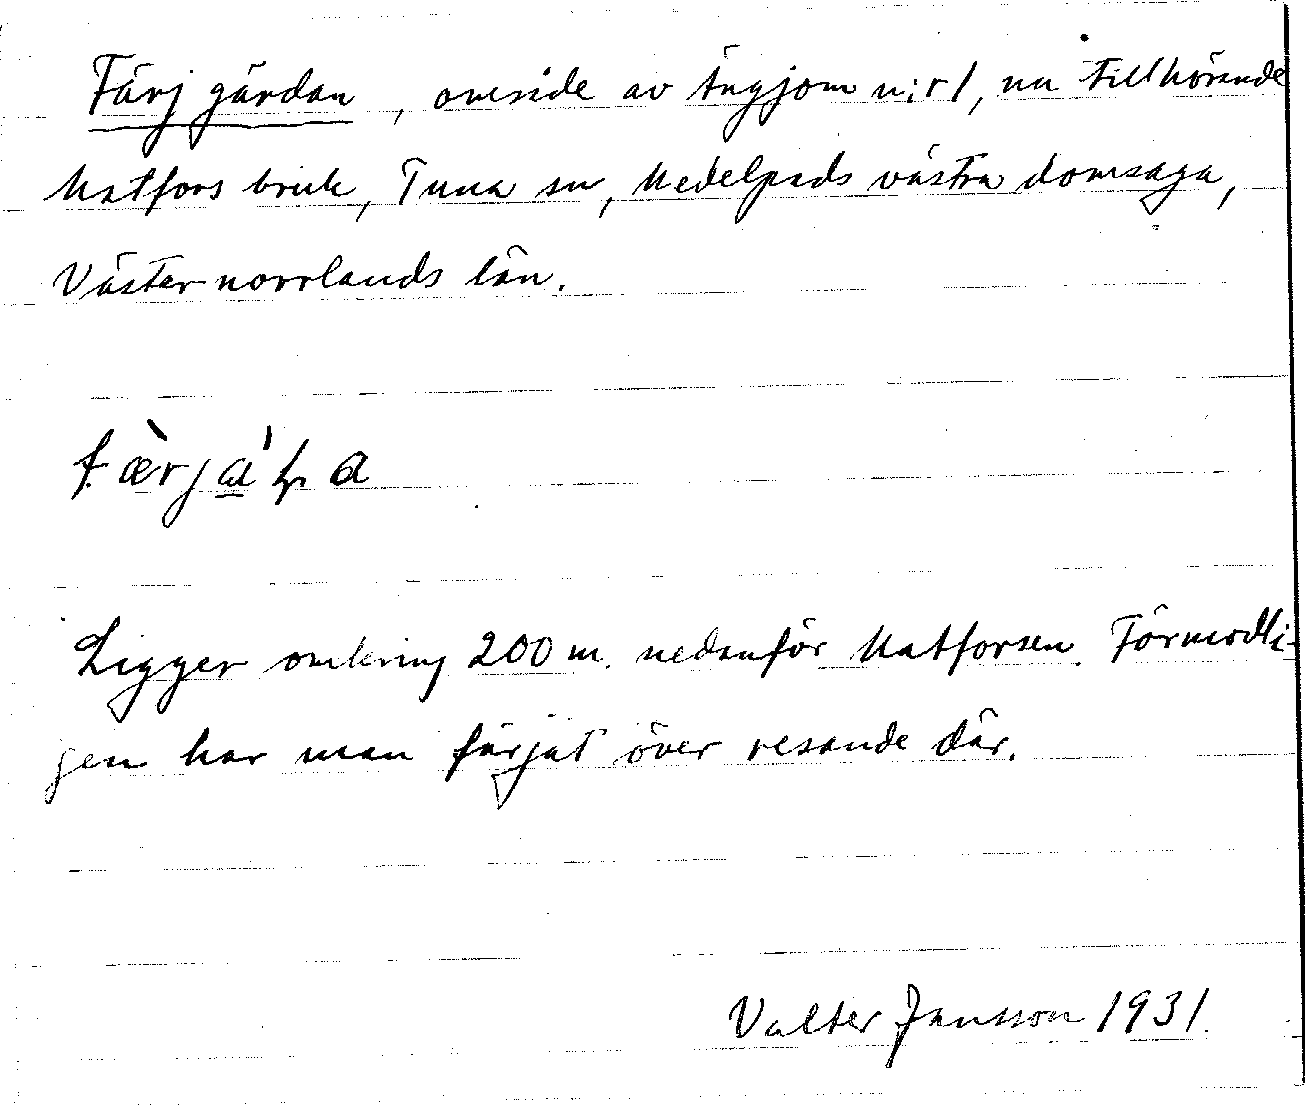 Färjgärdan, område av Ängjom n:r 1, nu tillhörande
Matfors bruk, Tuna sn, Medelpads västra domsaga,
Västernorrlands län.
Ligger omkring 200 m. nedanför Matforsen. Förmodli-
gen har man färjat över resande där.
Valter Jansson 1931.